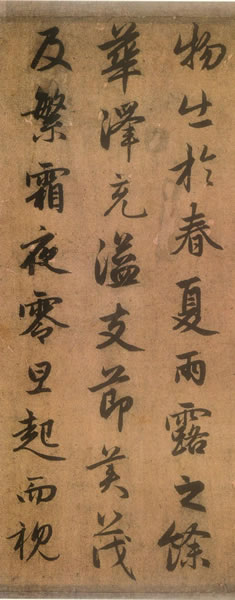 物生於春夏雨露之餘
華澤充溢支莭美茂
及繁霜夜零旦起而視